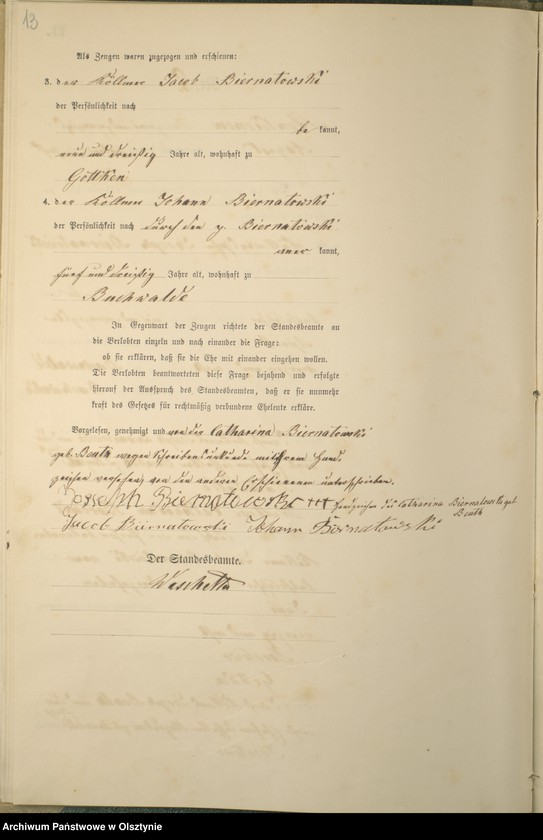 13
Als Zeugen waren zugezogen und erschienen:
3. der Köllmer Jacob Biernatowski
der Persönlichkeit nach
be kannt,
neun und dreißig Jahre alt, wohnhaft zu
Göttken
4. der Köllmer Johann Biernatowski
der Persönlichkeit nach durch den p. Biernatowski
aner kannt,
fünf und dreißig Jahre alt, wohnhaft zu
Buchwalde
In Gegenwart der Zeugen richtete der Standesbeamte an
die Verlobten einzeln und nach einander die Frage:
ob sie erklären, daß sie die Ehe mit einander eingehen wollen.
Die Verlobten beantworteten diese Frage bejahend und erfolgte
hierauf der Ausspruch des Standesbeamten, daß er sie nunmehr
kraft des Gesetzes für rechtmäßig verbundene Eheleute erkläre.
Vorgelesen, genehmigt und von der Catharina Biernatowski
geb. Beuth wegen Schreibensunkunde mit ihrem Hand-
zeichen versehen, von den anderen Erschienenen unterschrieben.
Joseph Biernatowski +++ Handzeichen der Catharina Biernatowski geb.
Beuth
Jacob Biernatowski Johann Biernatowski
Der Standesbeamte.
Archiwum Państwowe w Olsztynie